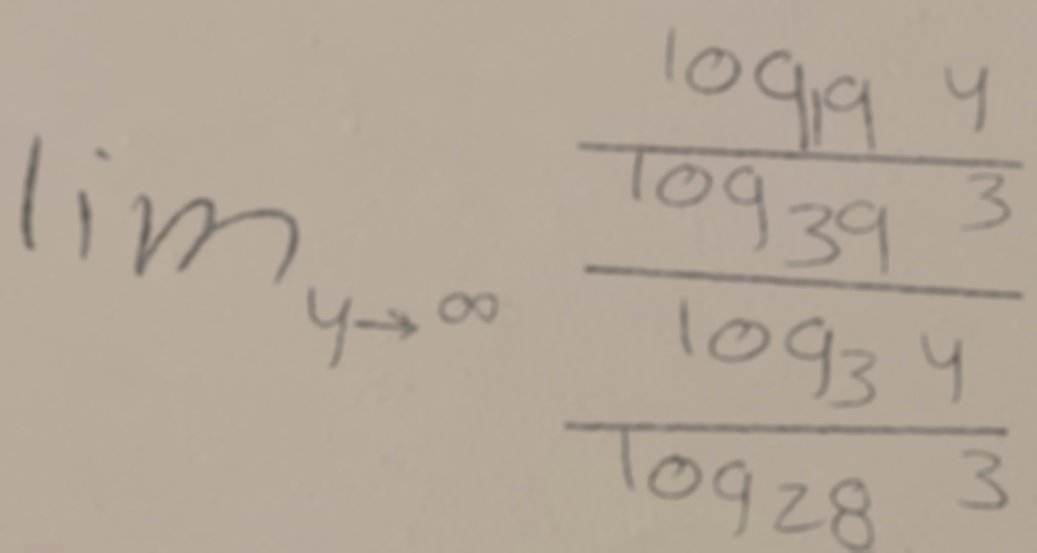 lim y→∞
log₁₉ y
log₃₉ 3
log₃ y
log₂₈ 3